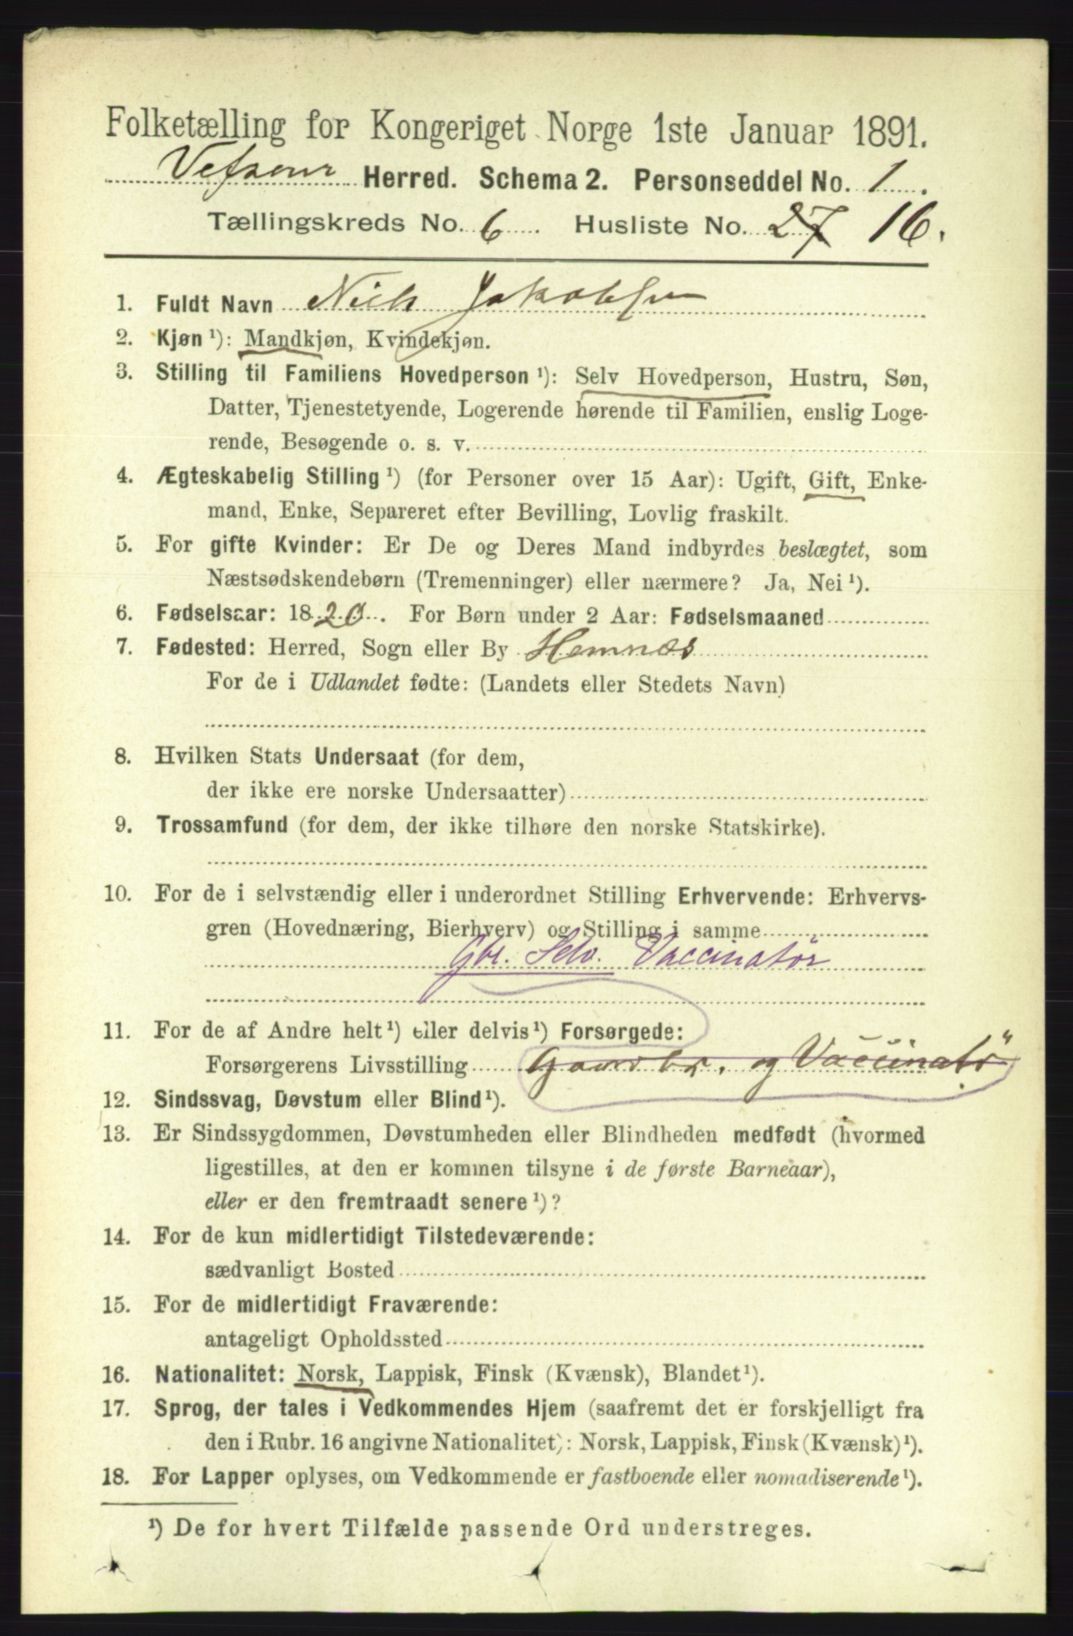 Folketælling for Kongeriget Norge 1ste Januar 1891.
Vefsen Herred. Schema 2. Personseddel No. 1.
Tællingskreds No. 6. Husliste No. 27 16.
1. Fuldt Navn Niels Jakobsen
2. Kjøn ¹): Mandkjøn, Kvindekjøn.
3. Stilling til Familiens Hovedperson ¹): Selv Hovedperson, Hustru, Søn,
Datter, Tjenestetyende, Logerende hørende til Familien, enslig Loge-
rende, Besøgende o. s. v.
4. Ægteskabelig Stilling ¹) (for Personer over 15 Aar): Ugift, Gift, Enke-
mand, Enke, Separeret efter Bevilling, Lovlig fraskilt.
5. For gifte Kvinder: Er De og Deres Mand indbyrdes beslægtet, som
Næstsødskendebørn (Tremenninger) eller nærmere? Ja, Nei ¹).
6. Fødselsaar: 1820. For Børn under 2 Aar: Fødselsmaaned
7. Fødested: Herred, Sogn eller By Hemnæs
For de i Udlandet fødte: (Landets eller Stedets Navn)
8. Hvilken Stats Undersaat (for dem,
der ikke ere norske Undersaatter)
9. Trossamfund (for dem, der ikke tilhøre den norske Statskirke).
10. For de i selvstændig eller i underordnet Stilling Erhvervende: Erhvervs-
gren (Hovednæring, Bierhverv) og Stilling i samme
Gbr. Selv. Vaccinatør
11. For de af Andre helt ¹) eller delvis ¹) Forsørgede:
Forsørgerens Livsstilling Gaardbr. og Vaccinatø
12. Sindssvag, Døvstum eller Blind ¹).
13. Er Sindssygdommen, Døvstumheden eller Blindheden medfødt (hvormed
ligestilles, at den er kommen tilsyne i de første Barneaar),
eller er den fremtraadt senere ¹)?
14. For de kun midlertidigt Tilstedeværende:
sædvanligt Bosted
15. For de midlertidigt Fraværende:
antageligt Opholdssted
16. Nationalitet: Norsk, Lappisk, Finsk (Kvænsk), Blandet ¹).
17. Sprog, der tales i Vedkommendes Hjem (saafremt det er forskjelligt fra
den i Rubr. 16 angivne Nationalitet): Norsk, Lappisk, Finsk (Kvænsk) ¹).
18. For Lapper oplyses, om Vedkommende er fastboende eller nomadiserende ¹).
¹) De for hvert Tilfælde passende Ord understreges.